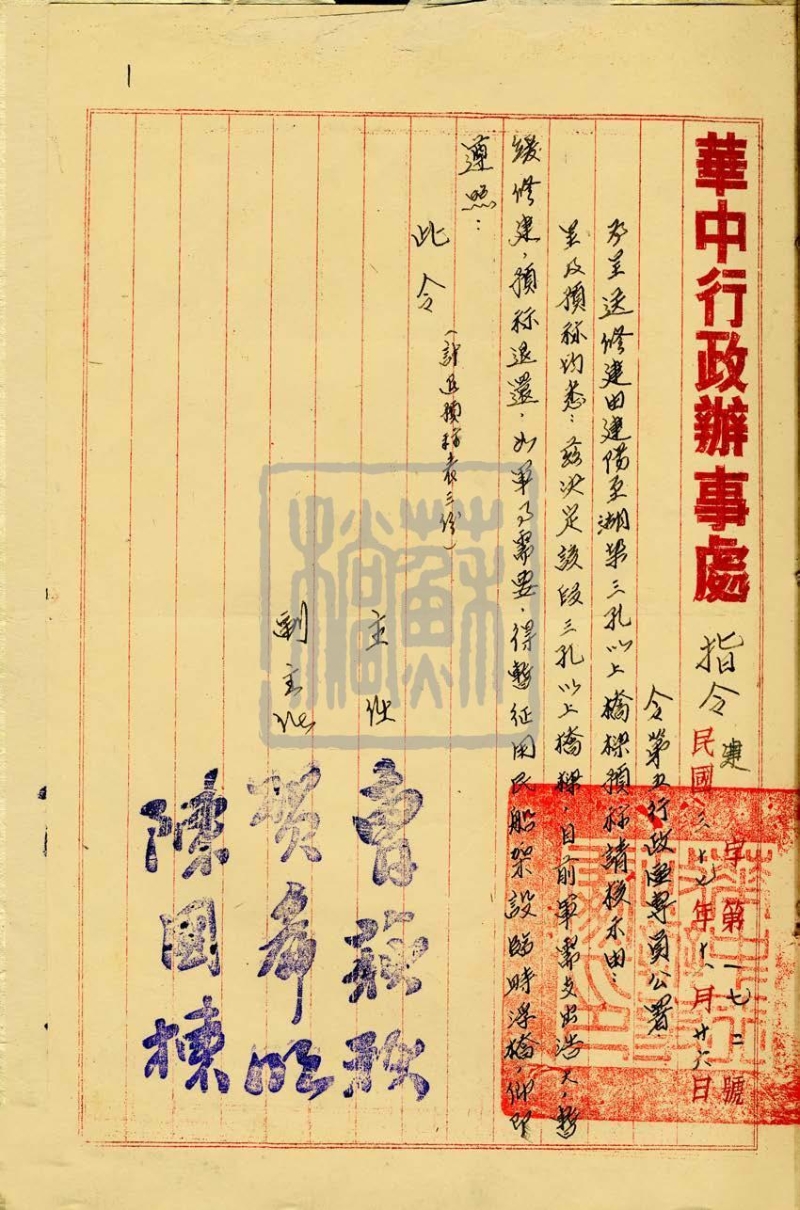 華中行政辦事處 指令 建字第一七二號
民國三十七年十一月廿六日
令第五行政區專員公署
為呈送修建由建陽至湖垛三孔以上橋樑預祘請核示由
呈及預祘均悉：茲決定該段三孔以上橋樑，目前軍需支出浩大，暫
緩修建，預祘退還，如軍事需要，得暫征用民船架設臨時浮橋，仰即
遵照：
此令
（計退預祘表三份）
主任 曹荻秋
副主任 賀希明
陳國棟